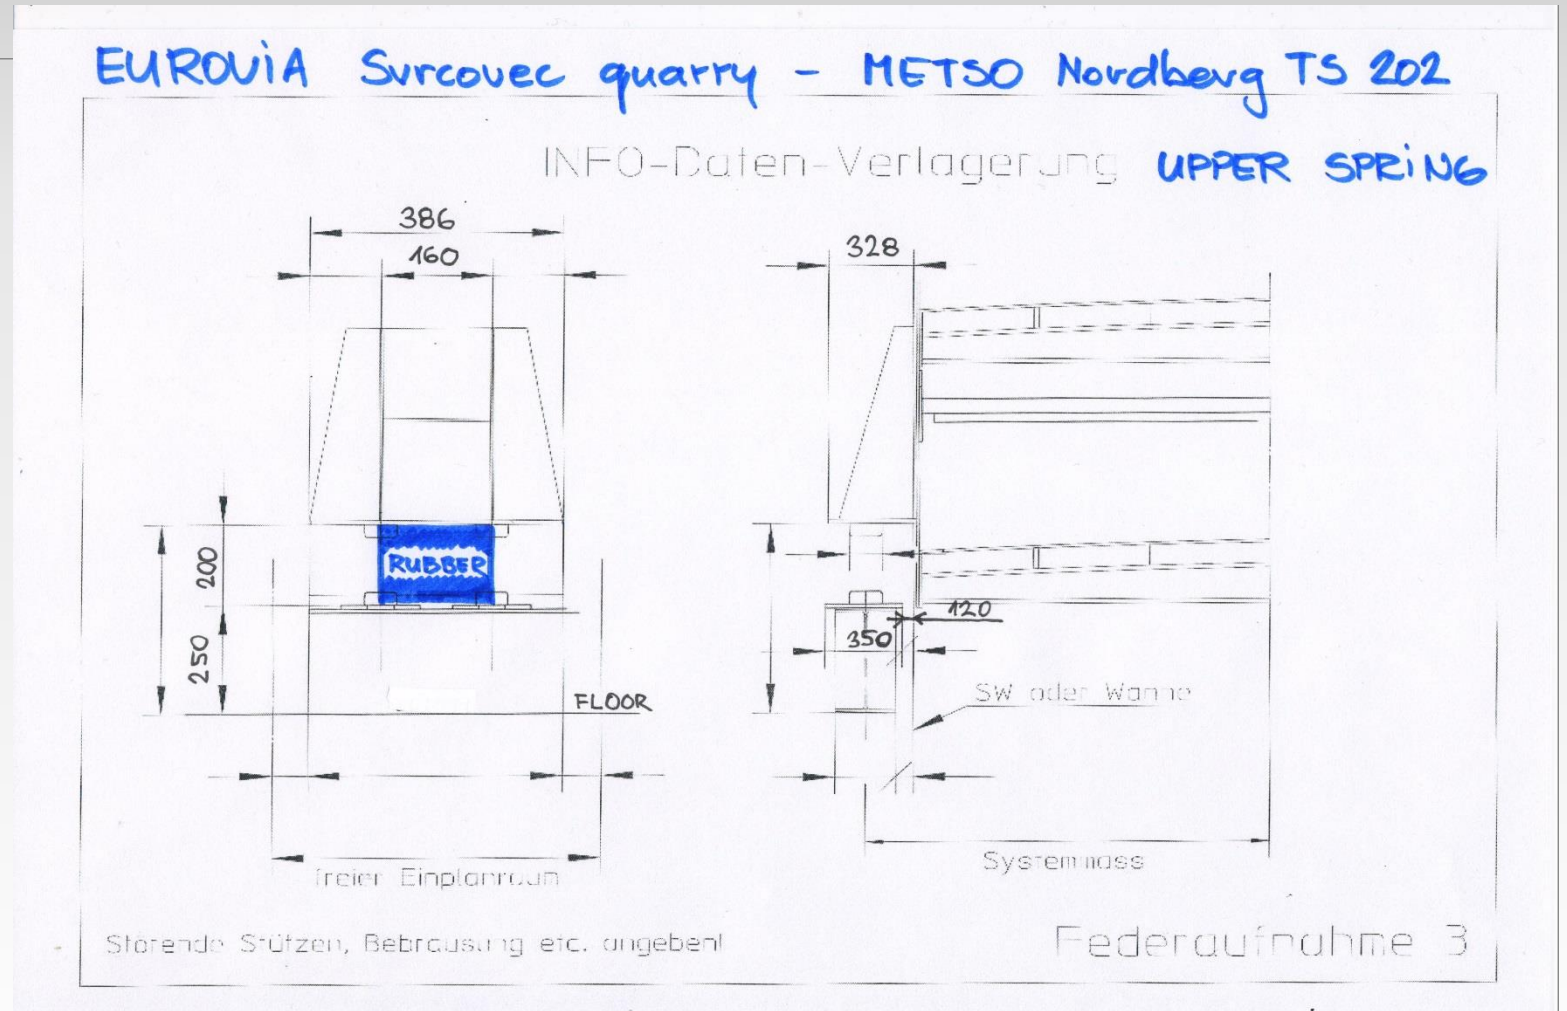 EUROVIA Svrcovec quarry - METSO Nordberg TS 202
INFO-Daten-Verlagerung UPPER SPRING
386
160
328
200
RUBBER
250
120
350
SW oder Wanne
FLOOR
Systemmass
freier Einplanraum
Störende Stützen, Bebrausung etc. angeben!
Federaufnahme 3